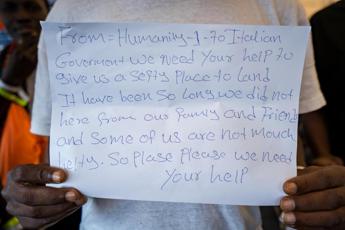 From = Humanity-1-To Italian
Goverment we need Your help to
give us a Sefty Place to Land
It have been So Long we did not
here from our family and Friend
and Some of us are not Mouch
helty. So Plase Please we need
Your help